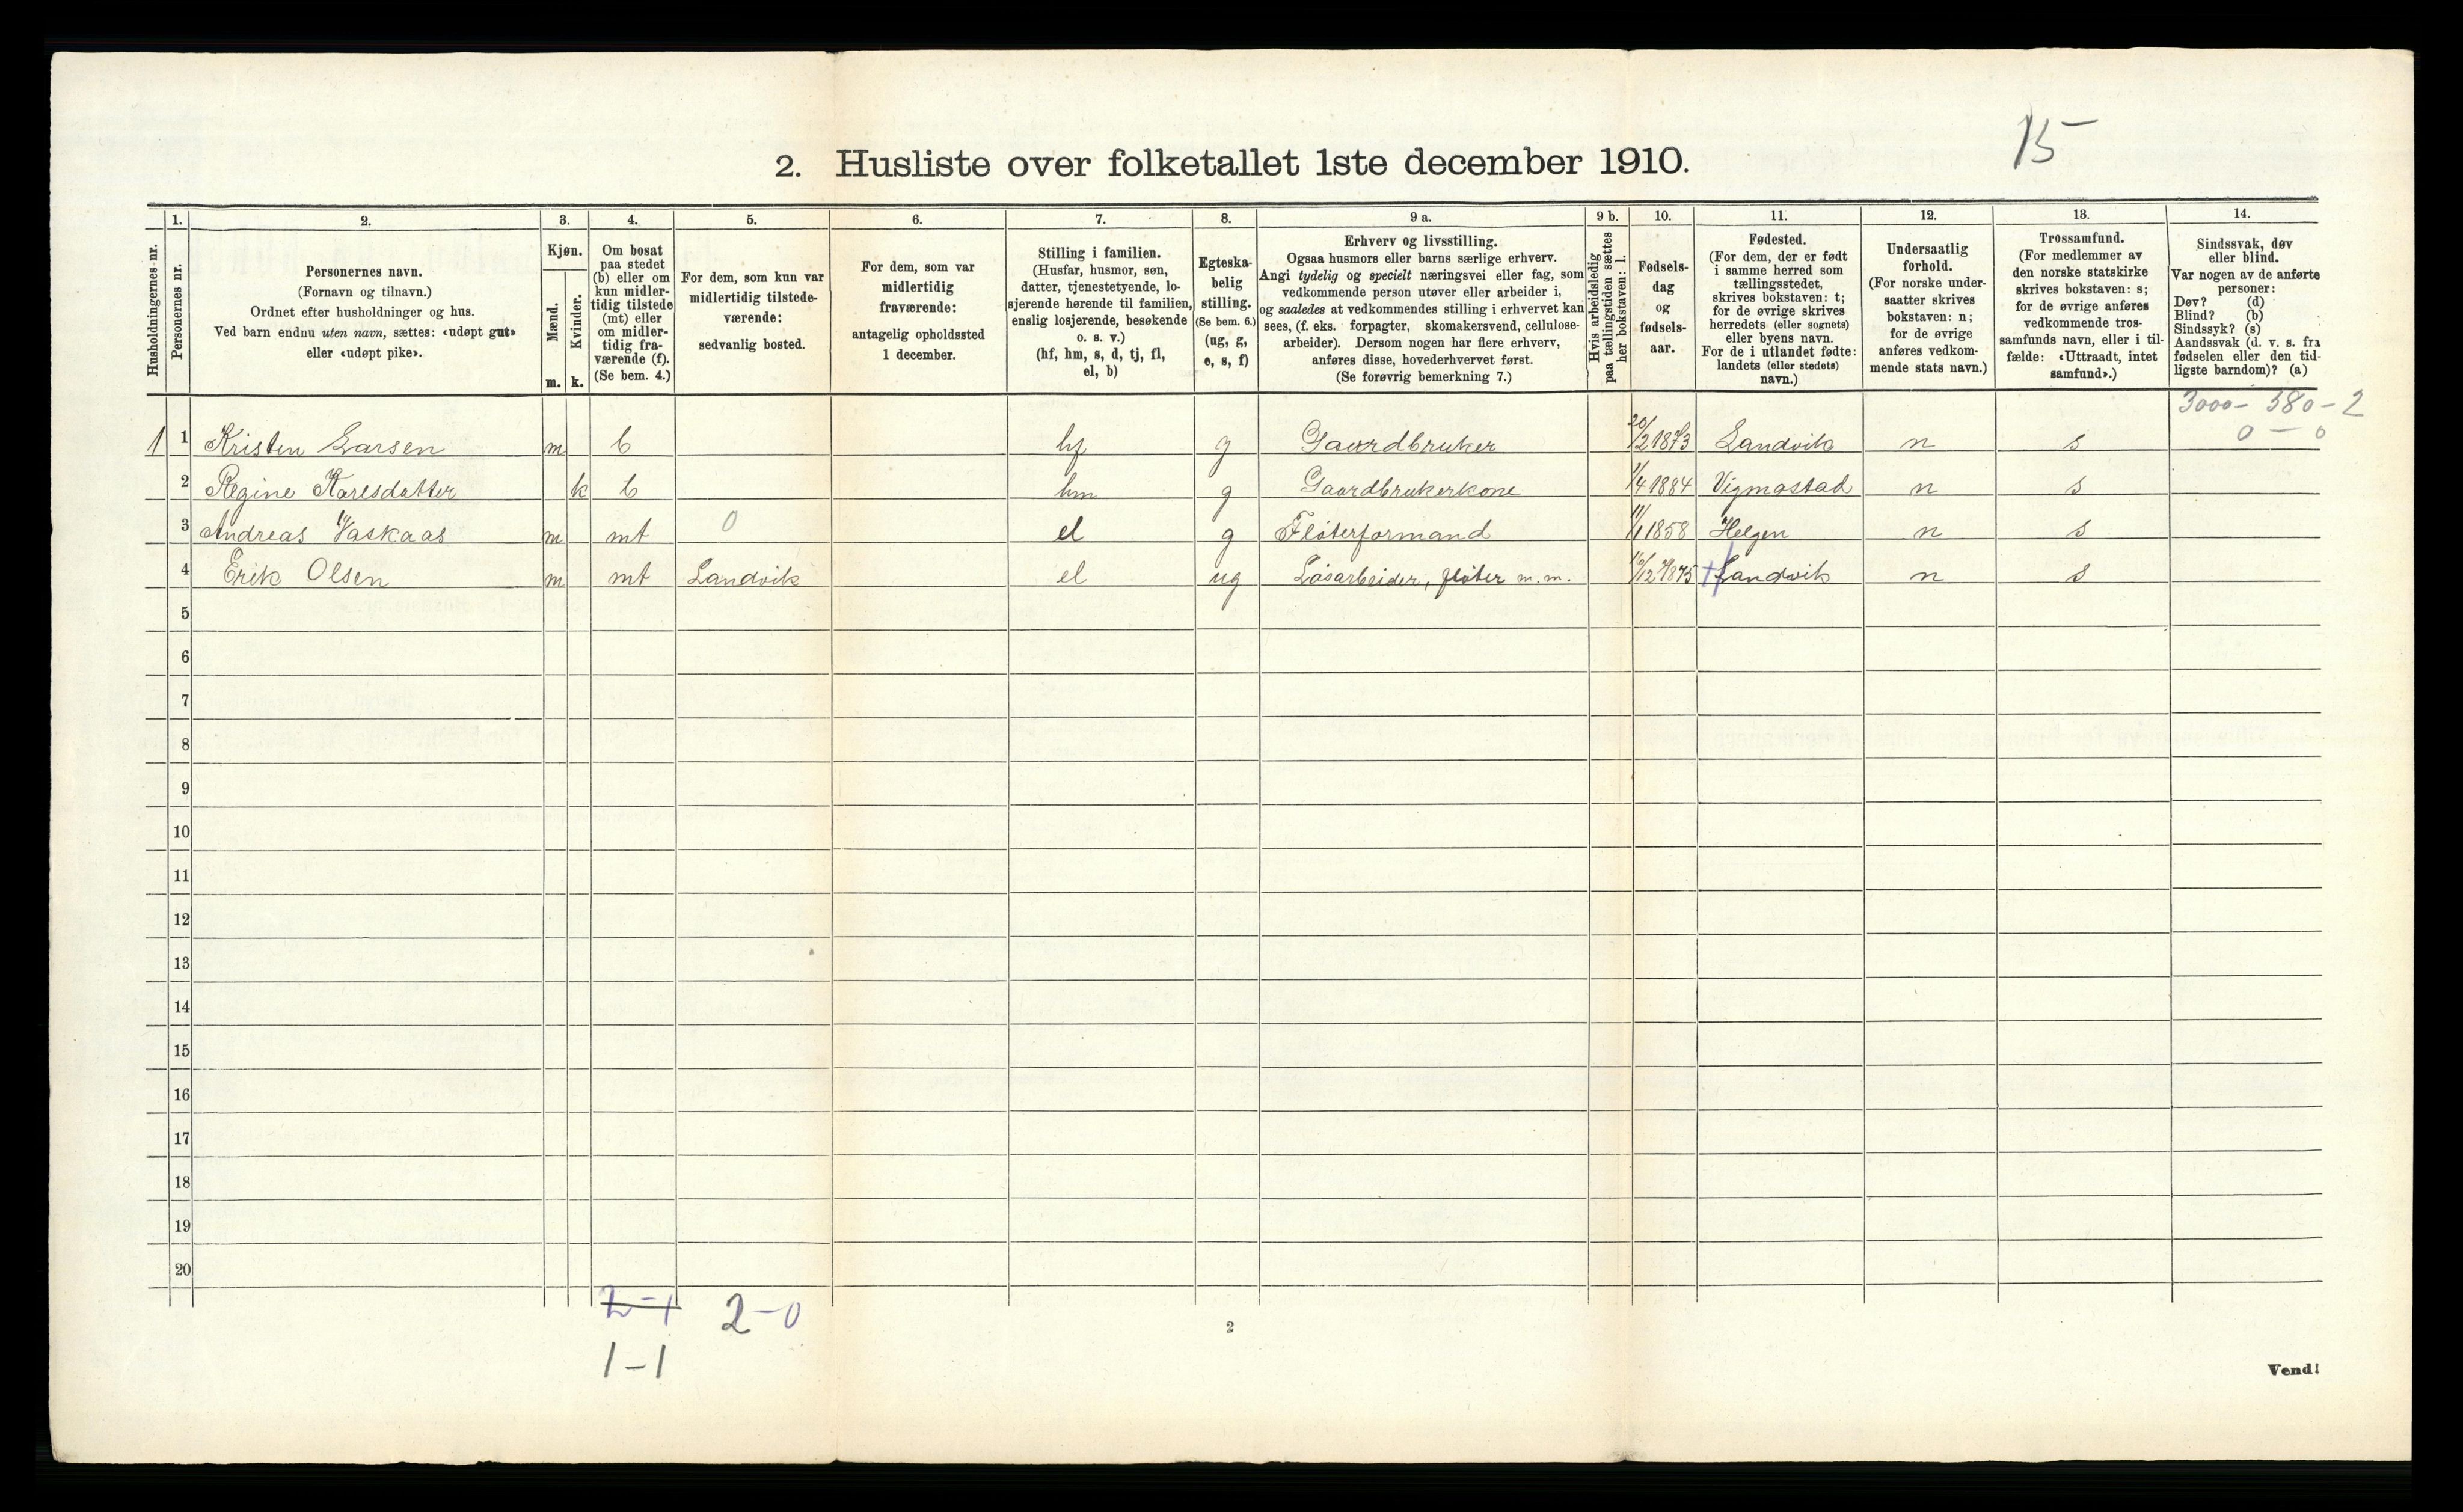 15
2. Husliste over folketallet 1ste december 1910.
Husholdningernes nr.
1.
Personernes nr.
2.
Personernes navn.
(Fornavn og tilnavn.)
Ordnet efter husholdninger og hus.
Ved barn endnu uten navn, sættes: «udøpt gut»
eller «udøpt pike».
3.
Kjøn.
Mænd.
Kvinder.
m. k.
4.
Om bosat
paa stedet
(b) eller om
kun midler-
tidig tilstede
(mt) eller
om midler-
tidig fra-
værende (f).
(Se bem. 4.)
5.
For dem, som kun var
midlertidig tilstede-
værende:
sedvanlig bosted.
6.
For dem, som var
midlertidig
fraværende:
antagelig opholdssted
1 december.
7.
Stilling i familien.
(Husfar, husmor, søn,
datter, tjenestetyende, lo-
sjerende hørende til familien,
enslig losjerende, besøkende
o. s. v.)
(hf, hm, s, d, tj, fl,
el, b)
8.
Egteska-
belig
stilling.
(Se bem. 6.)
(ug, g,
e, s, f)
9 a.
Erhverv og livsstilling.
Ogsaa husmors eller barns særlige erhverv.
Angi tydelig og specielt næringsvei eller fag, som
vedkommende person utøver eller arbeider i,
og saaledes at vedkommendes stilling i erhvervet kan
sees, (f. eks. forpagter, skomakersvend, cellulose-
arbeider). Dersom nogen har flere erhverv,
anføres disse, hovederhvervet først.
(Se forøvrig bemerkning 7.)
9 b.
Hvis arbeidsledig
paa tællingstiden sættes
her bokstaven: l.
10.
Fødsels-
dag
og
fødsels-
aar.
11.
Fødested.
(For dem, der er født
i samme herred som
tællingsstedet,
skrives bokstaven: t;
for de øvrige skrives
herredets (eller sognets)
eller byens navn.
For de i utlandet fødte:
landets (eller stedets)
navn.)
12.
Undersaatlig
forhold.
(For norske under-
saatter skrives
bokstaven: n;
for de øvrige
anføres vedkom-
mende stats navn.)
13.
Trossamfund.
(For medlemmer av
den norske statskirke
skrives bokstaven: s;
for de øvrige anføres
vedkommende tros-
samfunds navn, eller i til-
fælde: «Uttraadt, intet
samfund».)
14.
Sindssvak, døv
eller blind.
Var nogen av de anførte
personer:
Døv? (d)
Blind? (b)
Sindssyk? (s)
Aandssvak (d. v. s. fra
fødselen eller den tid-
ligste barndom)? (a)
3000 - 380 - 2
0 - 0
1 1 Kristen Larsen m b hf g Gaardbruker 20/2 1873 Landvik n s
2 Regine Karlsdatter k b hm g Gaardbrukerkone 1/4 1884 Vigmostad n s
3 Andreas Vaskaas m mt 0 el g Fløterformand 11/1 1858 Helgen n s
4 Erik Olsen m mt Landvik el ug Løsarbeider, fløter m.m. 1875 Landvik n s
5
6
7
8
9
10
11
12
13
14
15
16
17
18
19
20
2-1 2-0
1-1
2
Vend!